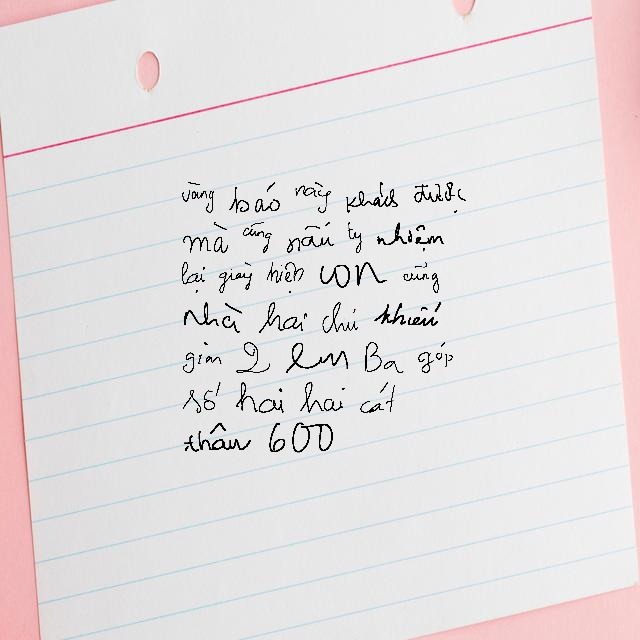 vàng báo này khách được
mà cũng nấu ty nhiệm
lại giày hiện con cũng
nhà hai chú khiến
gian 2 em Ba góp
số hai hai cát
thân 600